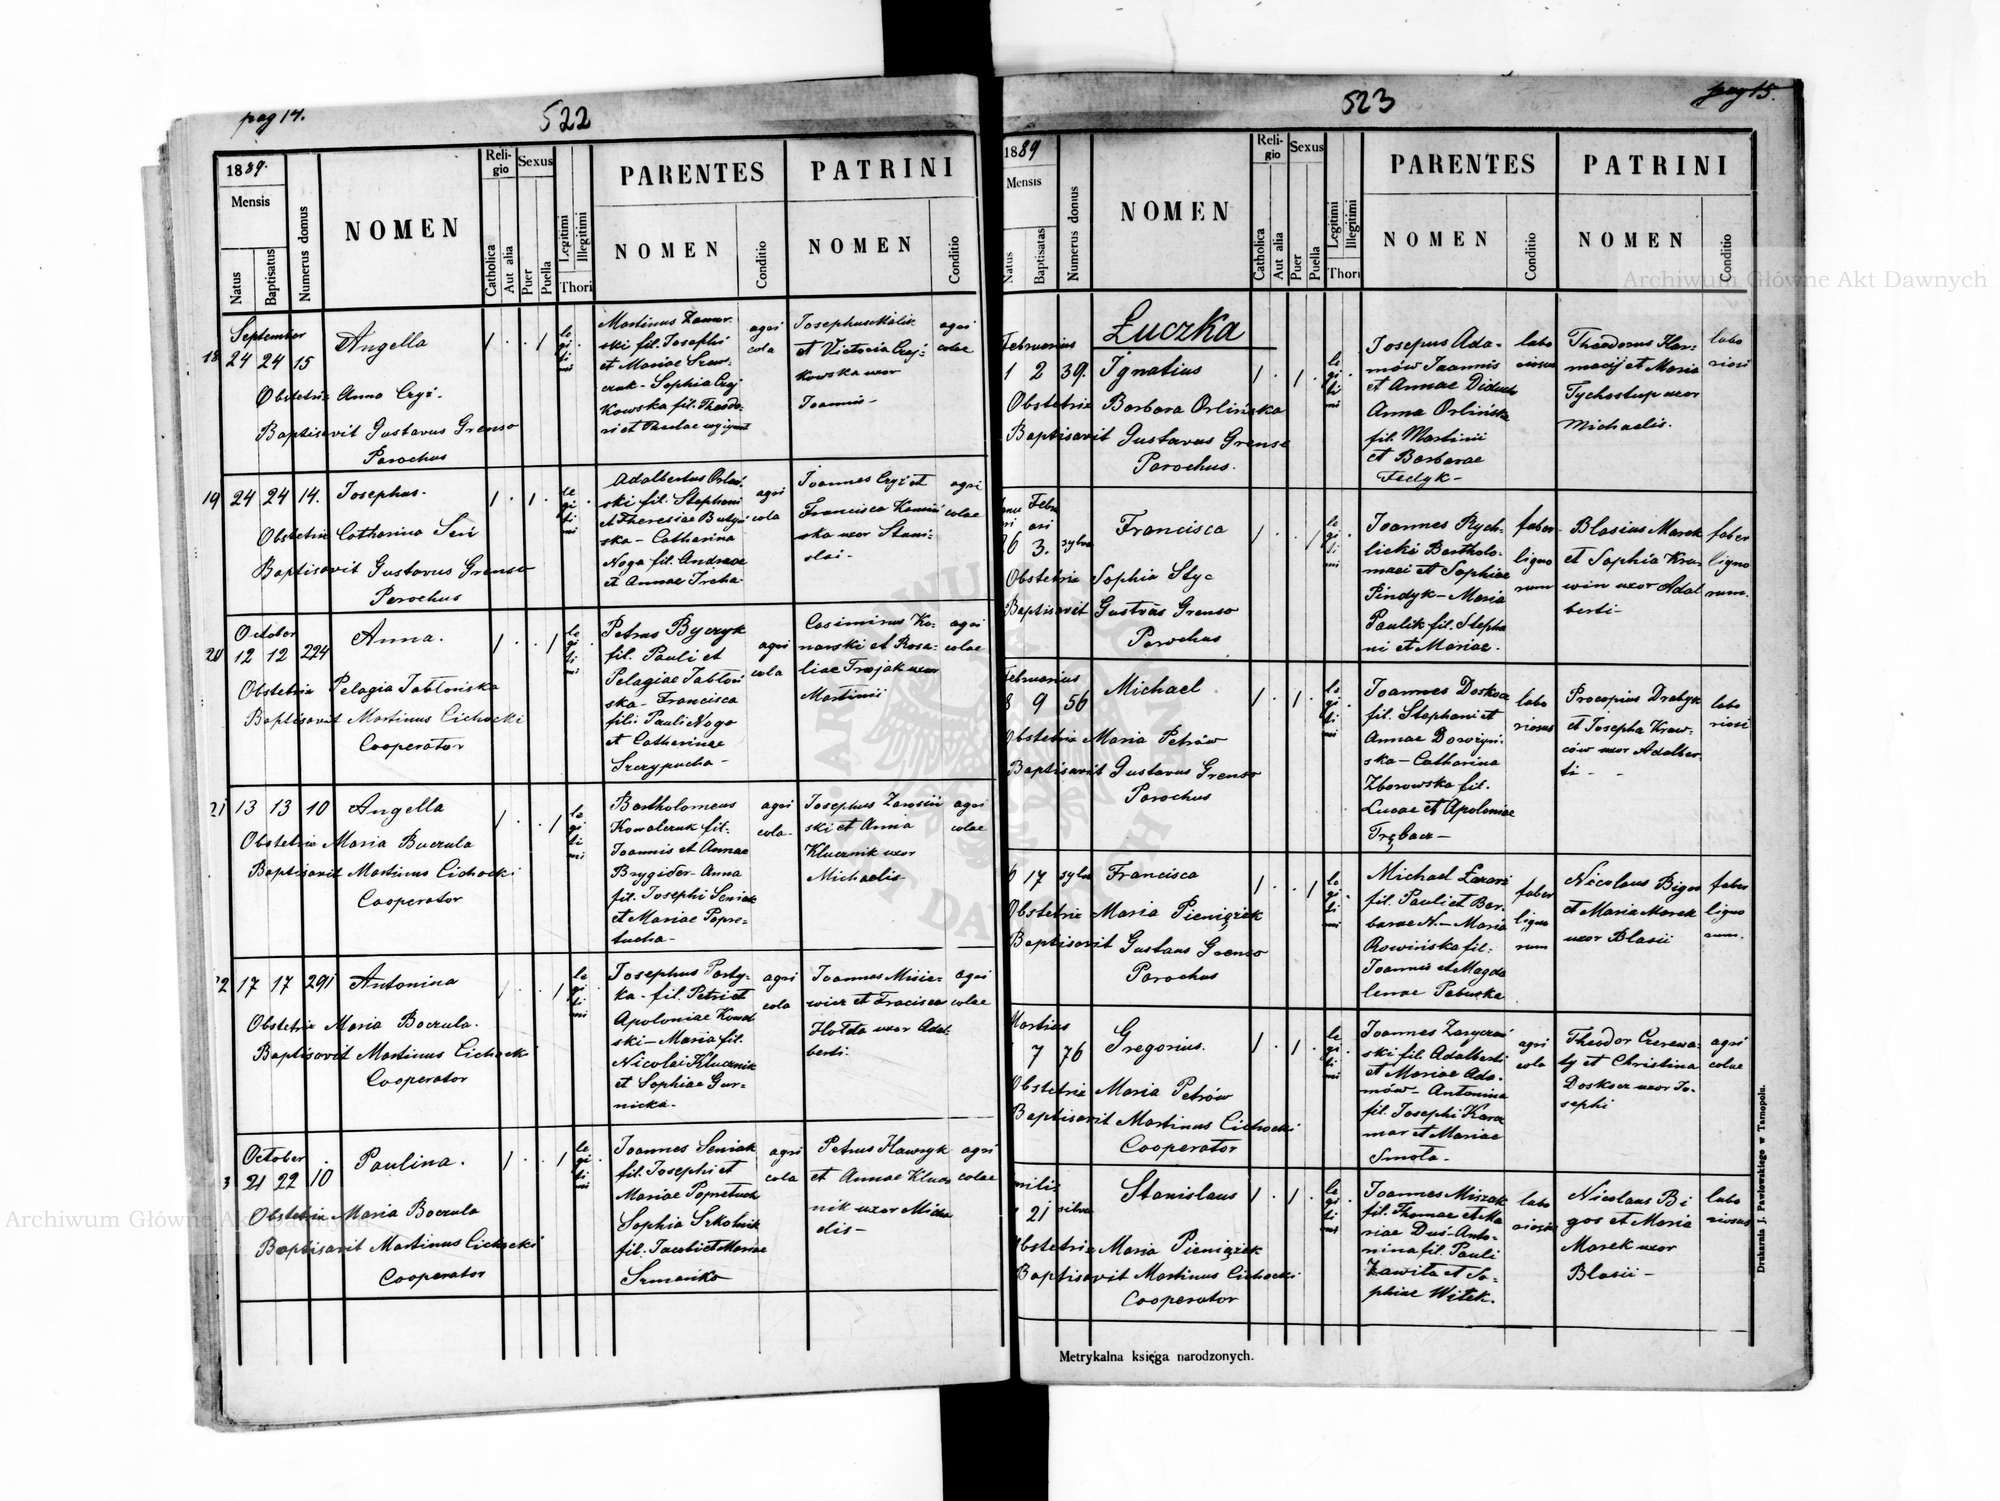 pag 14.
522
1889.
Mensis
Natus
Baptisatus
Numerus domus
NOMEN
Religio
Catholica
Aut alia
Sexus
Puer
Puella
Legitimi
Illegitimi
Thori
PARENTES
NOMEN
Conditio
PATRINI
NOMEN
Conditio
September
18 24 24 15 Angella
Obstetrix Anna Czyż.
Baptisavit Gustavus Grenso
Parochus
legitimi
Martinus
ski fil. Josephi
et Mariae
Sophia
kowska fil. Theodo-
ri et Paulae
agri
cola
Josephus
et Victoria
kowska uxor
Joannis-
agri
colae
19 24 24 14. Josephus.
Obstetrix Catharina
Baptisavit Gustavus Grenso
Parochus
legitimi
Adalbertus
ski fil. Stephani
et Theresiae
ska - Catharina
Noga fil. Andreae
et Annae
agri
cola
Joannes Czyż et
Francisca
ska uxor Stani-
slai-
agri
colae
October
20 12 12 224 Anna.
Obstetrix Pelagia Jabłońska
Baptisavit Martinus Cichocki
Cooperator
legitimi
Petrus Byczyk
fil. Pauli et
Pelagiae Jabłoń
ska- Francisca
fil: Pauli Noga
et Catharinae
Szczypucha-
agri
cola
Casimirus Ko-
narski et Rosa-
liae Trojak uxor
Martinii
agri
colae
21 13 13 10 Angella
Obstetrix Maria Boczula
Baptisavit Martinus Cichocki
Cooperator
legitimi
Bartholomeus
Kowalczuk fil-
Joannis et Annae
Brygider- Anna
fil. Josephi Seniak
et Mariae Popre-
tucha-
agri
cola-
Josephus
ski et Anna
Klucznik uxor
Michaelis-
agri
colae
22 17 17 291 Antonina
Obstetrix Maria Boczula.
Baptisavit Martinus Cichocki
Cooperator
legitimi
Josephus Party-
ka- fil. Petri et
Apoloniae Kowal
ski- Maria fil.
Nicolai Klucznik
et Sophiae Gur-
nicka-
agri
cola
Joannes Misie-
wicz et Fracisca
Hołda uxor Adal-
berti.
agri
colae
October
3 21 22 10 Paulina.
Obstetrix Maria Boczula
Baptisavit Martinus Cichocki
Cooperator
legitimi
Joannes Seniak
fil. Josephi et
Mariae Popretuch
Sophia Szkolnik
fil. Jacobi et Mariae
Szmańko
agri
cola
Petrus Hawryk
et Annae Klucz
nik uxor Micha
elis-
agri
colae
523
pag 15.
1889
Mensis
Natus
Baptisatas
Numerus domus
NOMEN
Religio
Catholica
Aut alia
Sexus
Puer
Puella
Legitimi
Illegitimi
Thori
PARENTES
NOMEN
Conditio
PATRINI
NOMEN
Conditio
Łuczka
Februarius
1 2 39. Ignatius
Obstetrix Barbara Orlińska
Baptisavit Gustavus Grenso
Parochus.
legitimi
Josepus Ada-
mów Joannis
et Annae Diduch
Anna Orlińska
fil. Martinii
et Barbarae
Fedyk-
labo
riosus
Theodorus Kar-
macij et Maria
Tychostup uxor
Michaelis.
labo
riosi
26 3. sylva Francisca
Obstetrix Sophia Styc
Baptisavit Gustvus Grenso
Parochus
legitimi
Joannes Rych-
licki Bartholo-
maei et Sophiae
Pindyk- Maria
Paulik fil. Stepha
ni et Mariae.
faber
ligno
rum
Blasius Marek
et Sophia Kra
win uxor Adal
berti-
faber
ligno
rum.
Februarius
8 9 56 Michael
Obstetrix Maria Petrów
Baptisavit Gustavus Grenso
Parochus
legitimi
Joannes Doskocz
fil. Stephani et
Annae
ska- Catharina
Zborowska fil.
Lucae et Apoloniae
Trębacz-
labo
riosus
Procopius Drabyk
et Josepha Kraw-
ców uxor Adalber
ti- -
labo
riosi
6 17 sylva Francisca
Obstetrix Maria Pieniążek
Baptisavit Gustaus Grenso
Parochus
legitimi
Michael Łazari
fil. Pauli et Bar-
barae N.- Maria
Rowińska fil-
Joannis et Magda
lenae Pabuska
faber
ligno
rum
Nicolaus Bigos
et Maria Marek
uxor Blasii
faber
ligno
rum.
Martius
7 76 Gregorius.
Obstetrix Maria Petrów
Baptisavit Martinus Cichocki
Cooperator
legitimi
Joannes
ski fil. Adalberti
et Mariae Ada-
mów- Antonina
fil. Josephi Karcz
mar et Mariae
Smoła-
agri
cola
Theodor Czerewa-
ty et Christina
Doskocz uxor Jo-
sephi
agri
colae
21 silva Stanislaus
Obstetrix Maria Pieniążek
Baptisavit Martinus Cichocki
Cooperator
legitimi
Joannes Miszak
fil. Thomae et Ma
riae Duś- Anto-
nina fil. Pauli
Zawiła et So-
phiae Witek.
labo
riosus
Nicolaus Bi
gos et Maria
Marek uxor
Blasii-
labo
riosus
Metrykalna księga narodzonych.
Drukarnia J. Pawłowskiego w Tarnopolu.
Archiwum Główne Akt Dawnych
Archiwum Główne Akt Dawnych